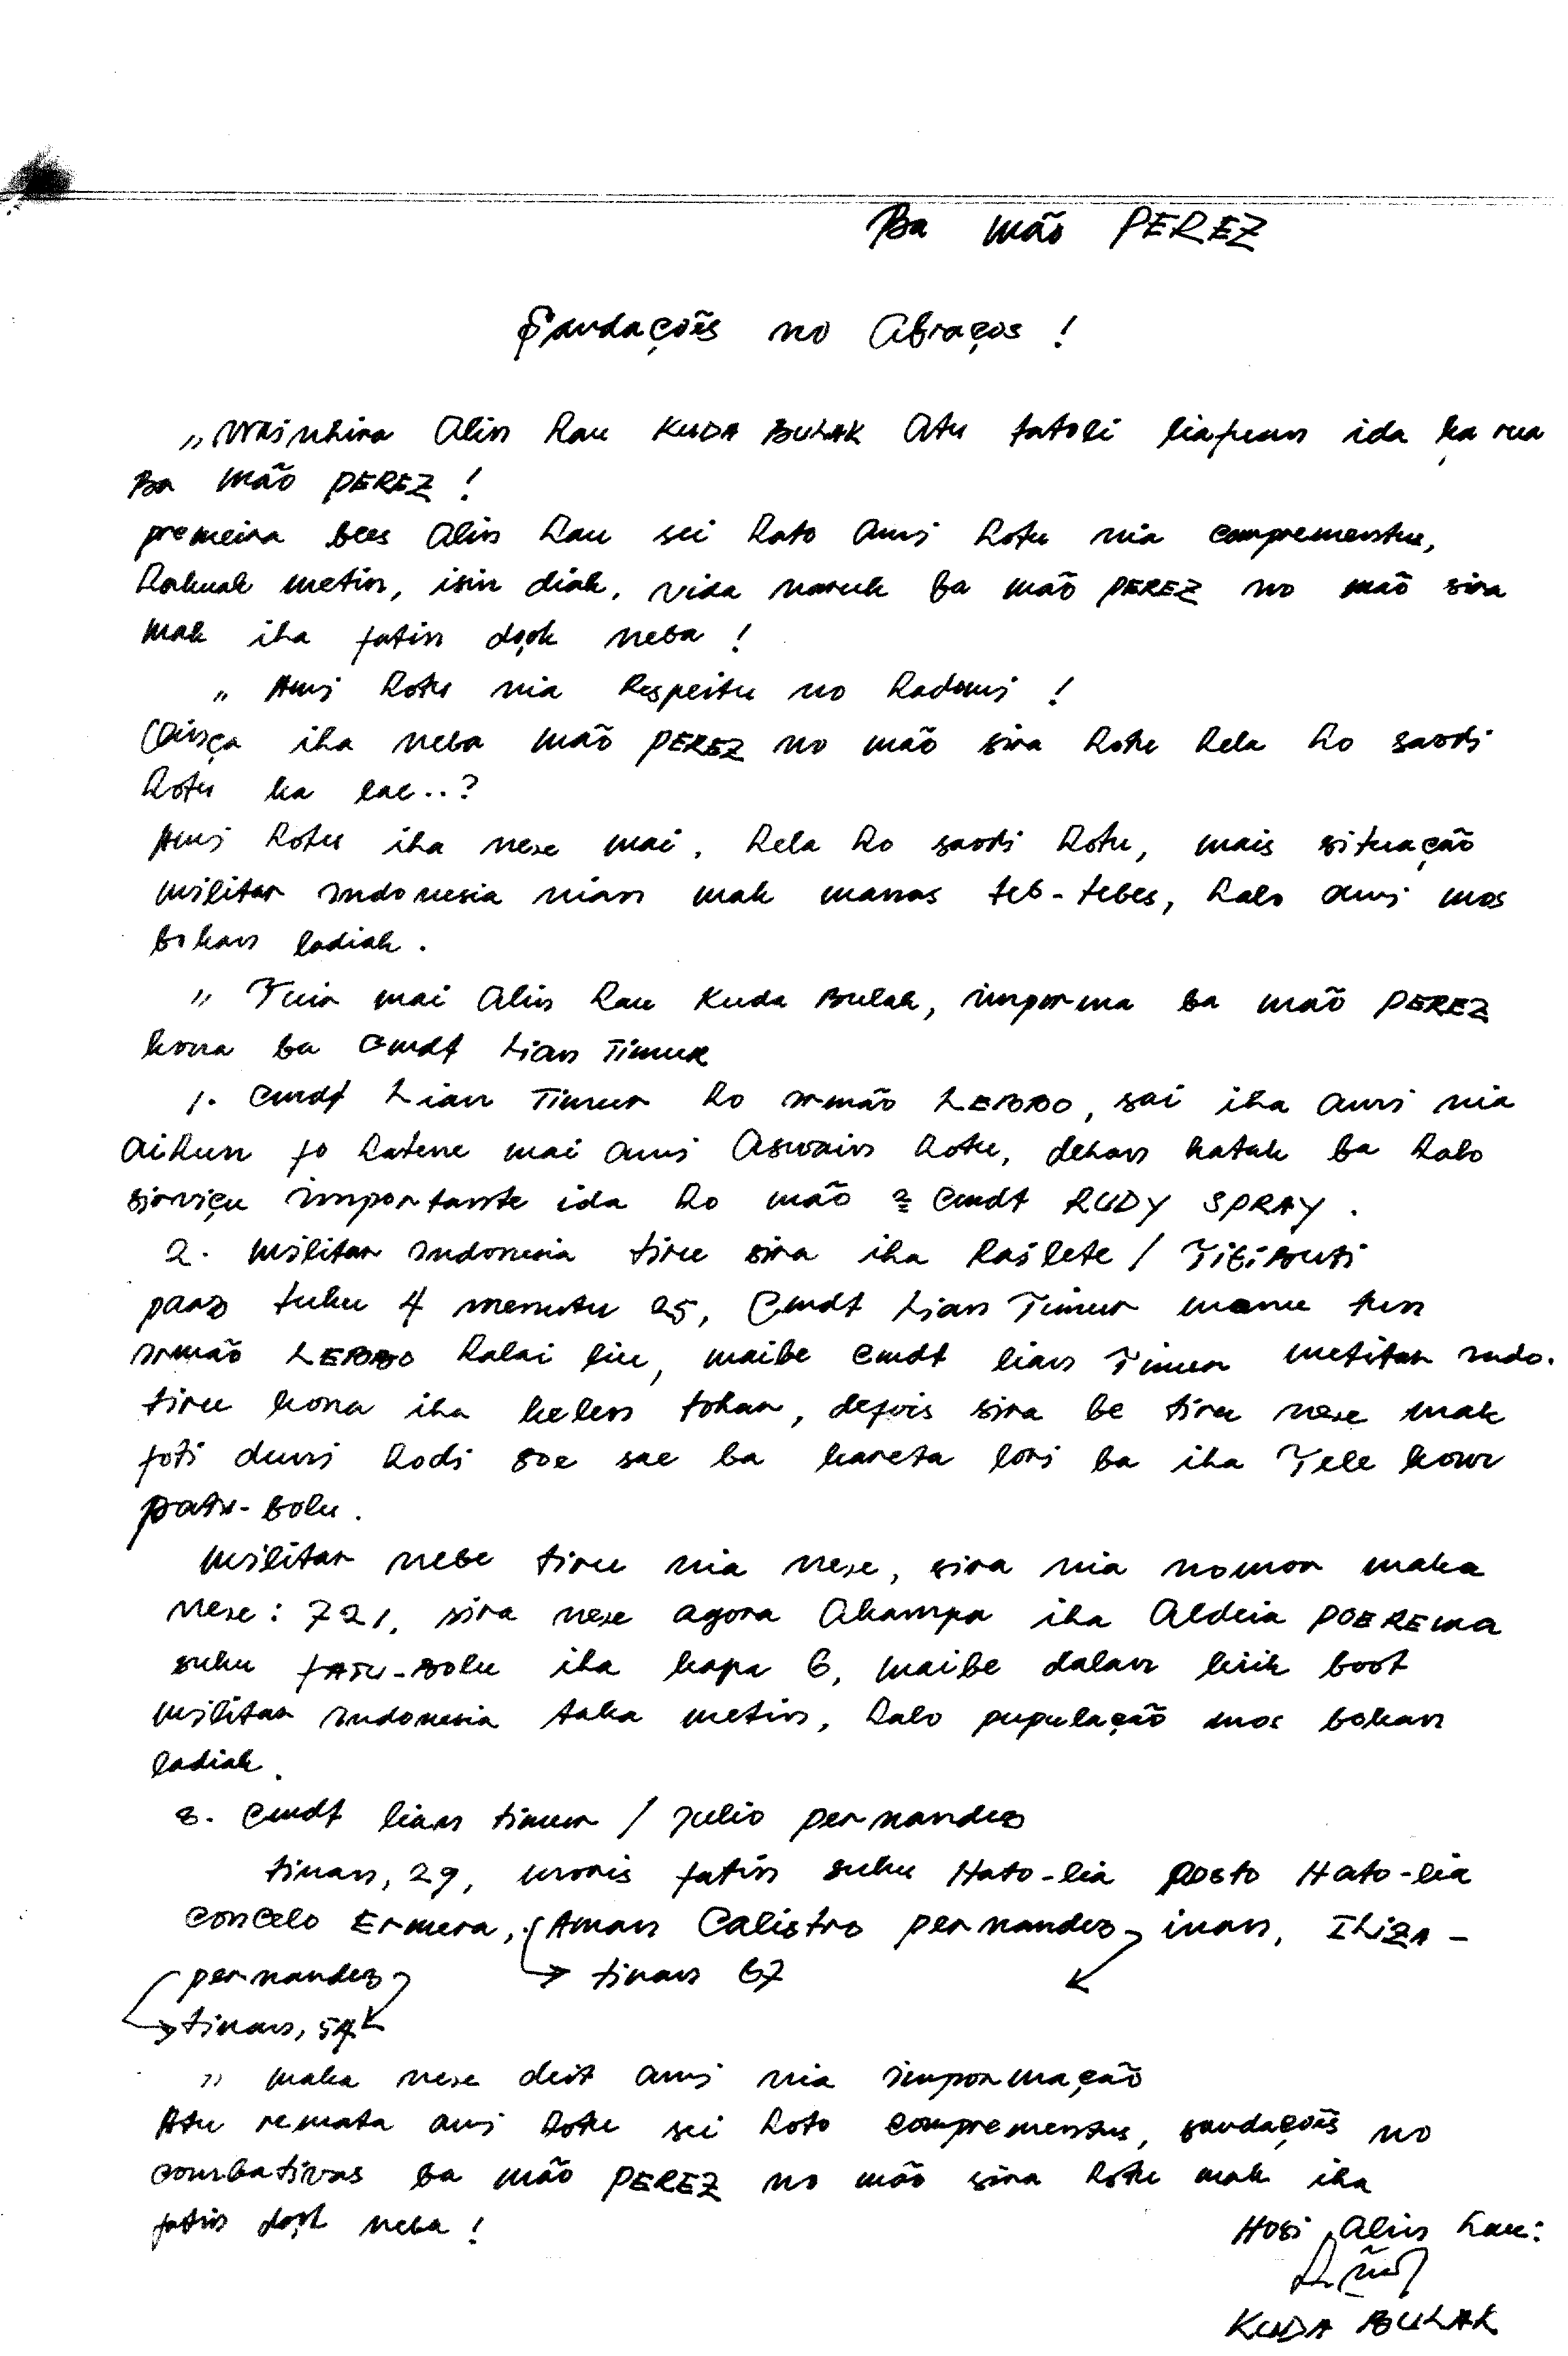 Ba mão PEREZ
Saudações no Abraços !
„ Wainhira Alin hau KUDA BULAK Atu fatoli liafuan ida ka rua
Ba mão PEREZ !
premeira bees Alin hau sei hato Ami hotu nia comprementus,
hakuak metin, isin diak, vida naruk ba mão PEREZ no mão sira
mak iha fatin dook neba !
„ Ami hotu nia Respeitu no hadomi !
Oinça iha neba mão PEREZ no mão sira hotu hela ho saodi
hotu ka lae..?
Ami hotu iha nexe mai, hela ho saodi hotu, mais situação
militar indonesia nian mak manas teb-tebes, halo ami mos
bokan ladiak.
„ Tuir mai Alin hau Kuda Bulak, imporma ba mão PEREZ
kona ba Cmdt Lian Timur
1. Cmdt Lian Timur ho irmão LEBBO, sai iha ami nia
aihun fo hatene mai ami Aswain hotu, dehan katak ba halo
sirviçu importante ida ho mão 2º Cmdt RUDY SPRAY.
2. Militar indonesia tiru sira iha hailete / Titibuti
paaz tuku 4 menutu 25, Cmdt Lian Timur manu tun
irmão LEBBO halai liu, maibe Cmdt lian Timur metitar indo.
tiru kona iha kelen tohar, depois sira be tiru nexe mak
foti dumi hodi soe sae ba kareta lori ba iha Tele kom
patu-bolu.
Militar nebe tiru nia nexe, sira nia nomor maka
nexe: 721, sira nexe agora Akampa iha Aldeia POEREMA
suku fatu-bolu iha kapa 6, maibe dalan kiik boot
militar indonesia taka metin, halo pupulação mos bokan
ladiak.
3. Cmdt lian timur / Julio pernandes
tinan, 29, moris fatin suku Hato-lia posto Hato-lia
Concelo Ermera, Aman Calistro pernandes, inan, Iliza-
pernandes → tinan 67
→ tinan, 54
„ maka nexe deit ami nia impormação
Atu remata ami hotu sei hoto comprementus, saudações no
combativas ba mão PEREZ no mão sira hotu mak iha
fatin dook neba !
Hosi Alin hau:
KUDA BULAK